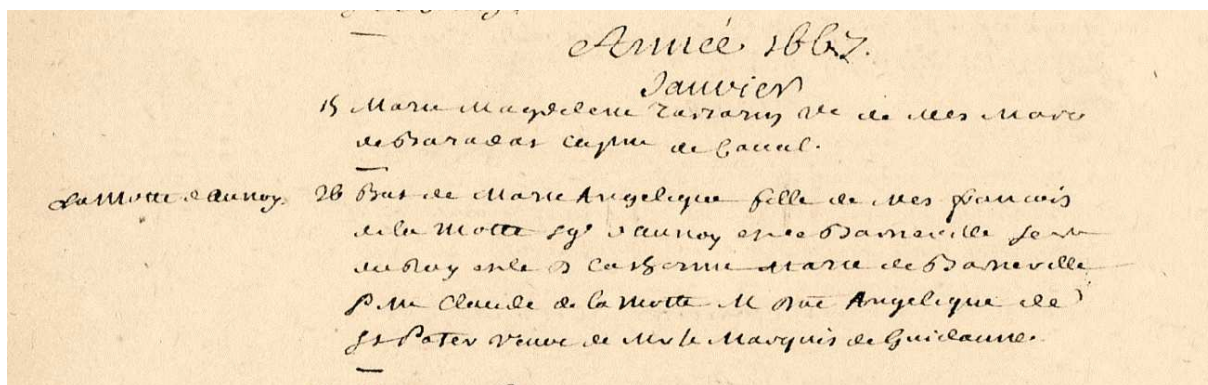 Année 1667.
Janvier
15 Marie Magdelene Tartarin Ve de Mes Marc
de Baradat Capne de Caval.
La Motte d'aunoy. 26 Bat de Marie Angelique fille de Mes francois
de la Motte sgr d'aunoy et de Barneville
du Roy et de D Catherine Marie de Barneville
P Mre Claude de la Motte M Dme Angelique de
St Pater veuve de Mr le Marquis de